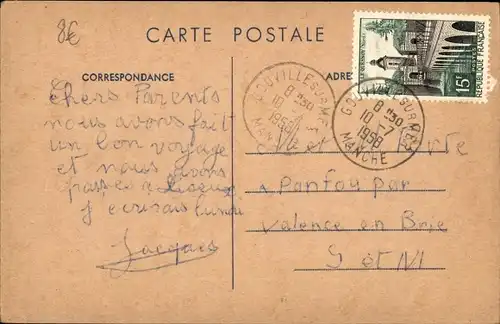 8€
CARTE POSTALE
CORRESPONDANCE
ADRE
Chers Parents
nous avons fait
un bon voyage
et nous avons
passée a Lisieux
J'ecrirais lundi
Jacques
et
à Panfou par
Valence en Brie
S et M
GOUVILLE-SUR-MER
8 H 30
10 - 7
1958
MANCHE
GOUVILLE-SUR-MER
8 H 30
10 - 7
1958
MANCHE
15F
POSTES
REPUBLIQUE FRANÇAISE